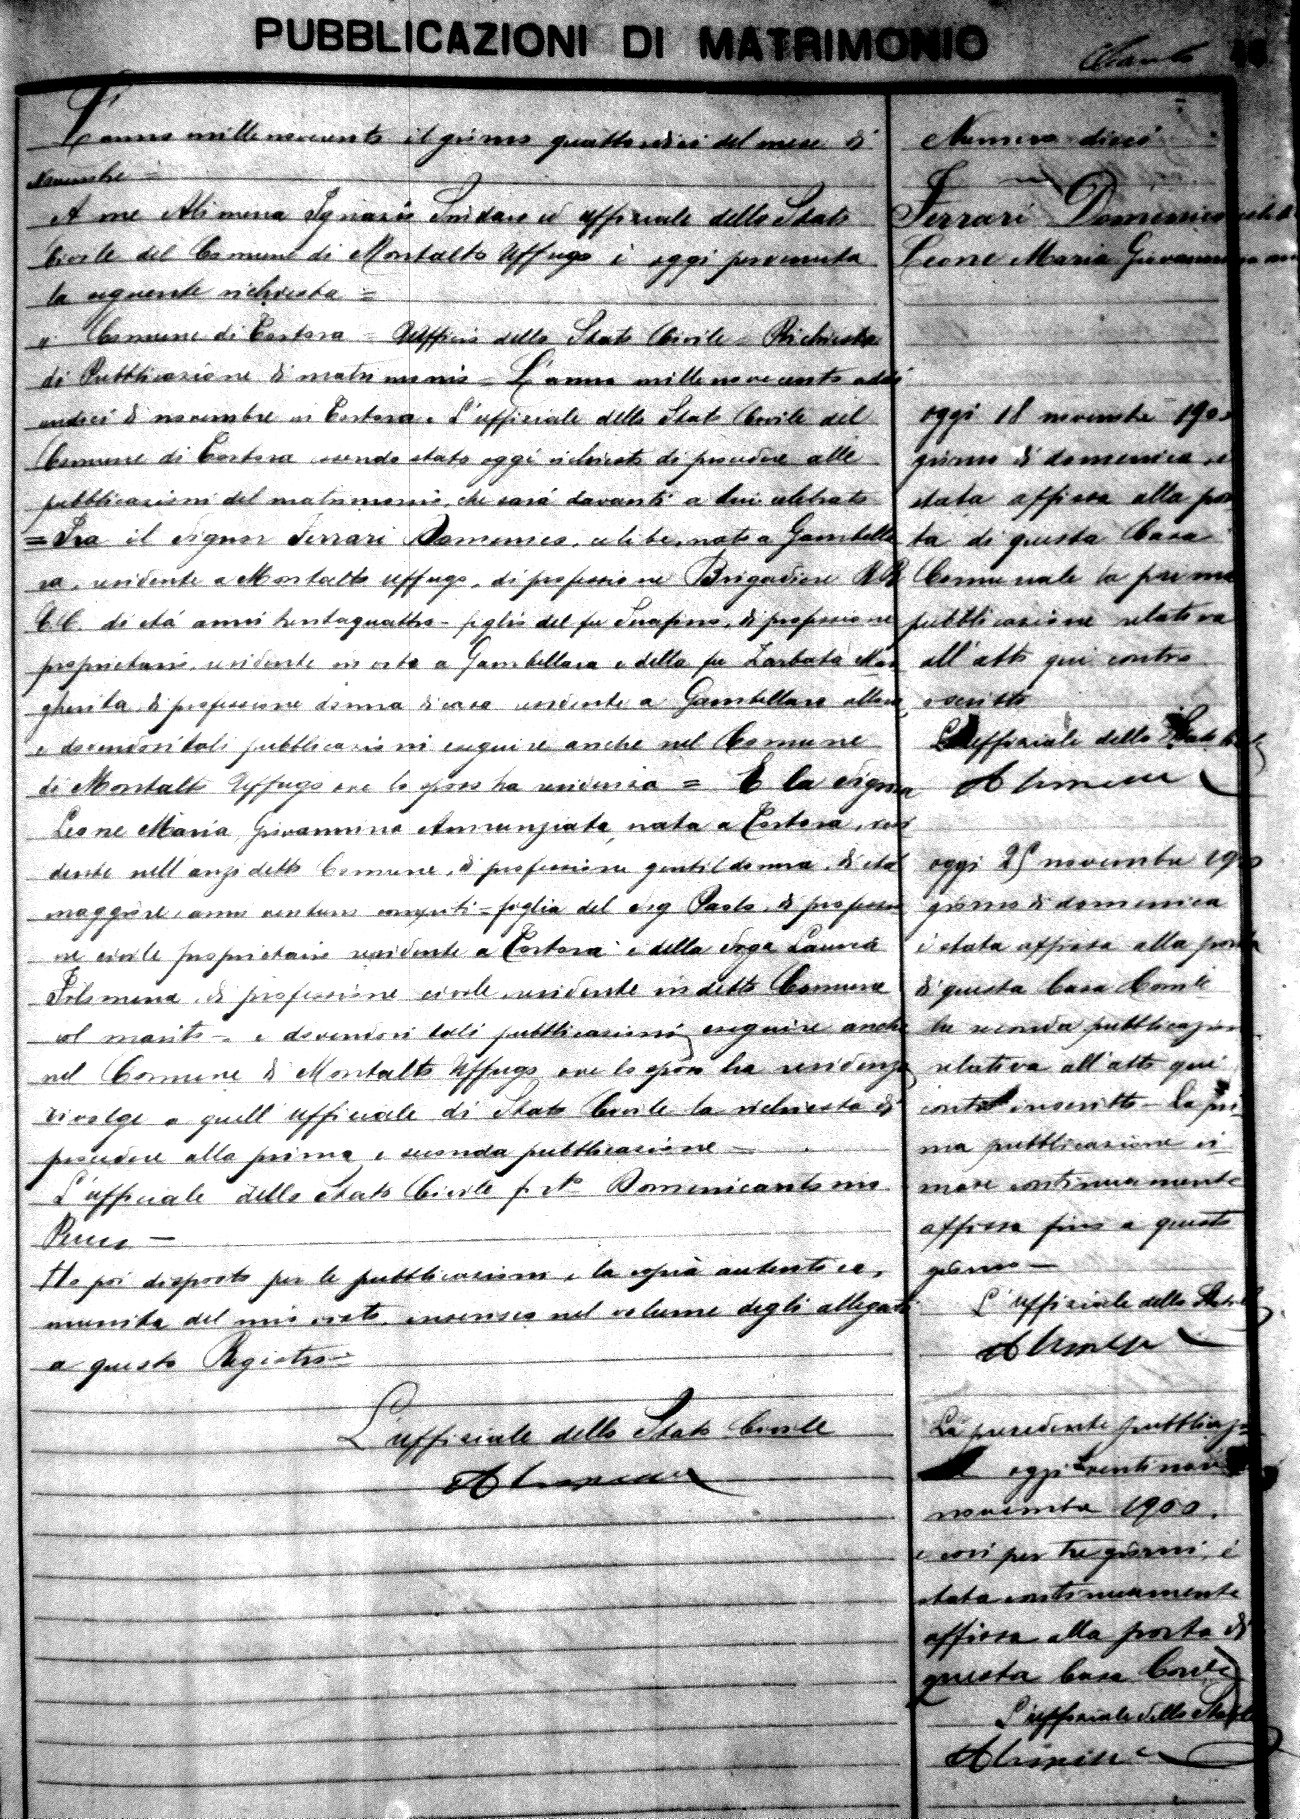 PUBBLICAZIONI DI MATRIMONIO
L'anno mille novecento il giorno quattordici del mese di
Novembre =
A me Alimena Ignazio Sindaco ed uffiziale dello Stato
Civile del Comune di Montalto Uffugo è oggi pervenuta
la seguente richiesta =
" Comune di Tortora = Ufficio dello Stato Civile = Richiesta
di Pubblicazione di matrimonio = L'anno mille novecento addì
undici di novembre in Tortora. L'ufficiale dello Stato Civile del
Comune di Tortora essendo stato oggi richiesto di procedere alle
pubblicazioni del matrimonio, che sarà davanti a lui celebrato
= Tra il signor Ferrari Domenico, celibe, nato a Gambella
ra, residente a Montalto Uffugo, di professione Brigadiere R.R.
C.C. di età anni trentaquattro - figlio del fu Serafino, di professione
proprietario, residente in vita a Gambellara e della fu Zarbatà Mar
gherita, di professione donna di casa residente a Gambellara
e dovendosi tali pubblicazioni eseguire anche nel Comune
di Montalto Uffugo ove lo sposo ha residenza = E la signora
Leone Maria Giovannina Annunziata, nata a Tortora, resi
dente nell'anzidetto Comune, di professione gentildonna, di età
maggiore anni ventuno compiti - figlia del sig Paolo, di professio
ne civile proprietario residente a Tortora e della sigra Lauria
Filomena, di professione civile, residente in detto Comune
col marito - e dovendosi tali pubblicazioni eseguire anche
nel Comune di Montalto Uffugo ove lo sposo ha residenza,
rivolge a quell'ufficiale di Stato Civile la richiesta di
procedere alla prima e seconda pubblicazione -
L'ufficiale dello Stato Civile f.to Domenicantonio
Ho poi disposto per le pubblicazioni, e la copia autentica,
munita del mio visto, inserisco nel volume degli allegati
a questo Registro =
L'uffiziale dello Stato Civile
Alimena
Numero dieci
Ferrari Domenico
Leone Maria Giovannina
oggi 18 novembre 1900
giorno di domenica è
stata affissa alla por
ta di questa Casa
Comunale la prima
pubblicazione relativa
all'atto qui contro
L'uffiziale dello Stato
Alimena
oggi 25 novembre 1900
giorno di domenica
è stata affissa alla porta
di questa Casa Com.le
la seconda pubblicazione
relativa all'atto qui
contro inscritto - La pri
ma pubblicazione ri
mase continuamente
affissa fino a questo
giorno -
L'uffiziale dello Stato
Alimena
La precedente pubblicaz.
oggi ventinove
novembre 1900,
e così per tre giorni, è
stata continuamente
affissa alla porta di
questa Casa Com.le
L'uffiziale dello Stato
Alimena